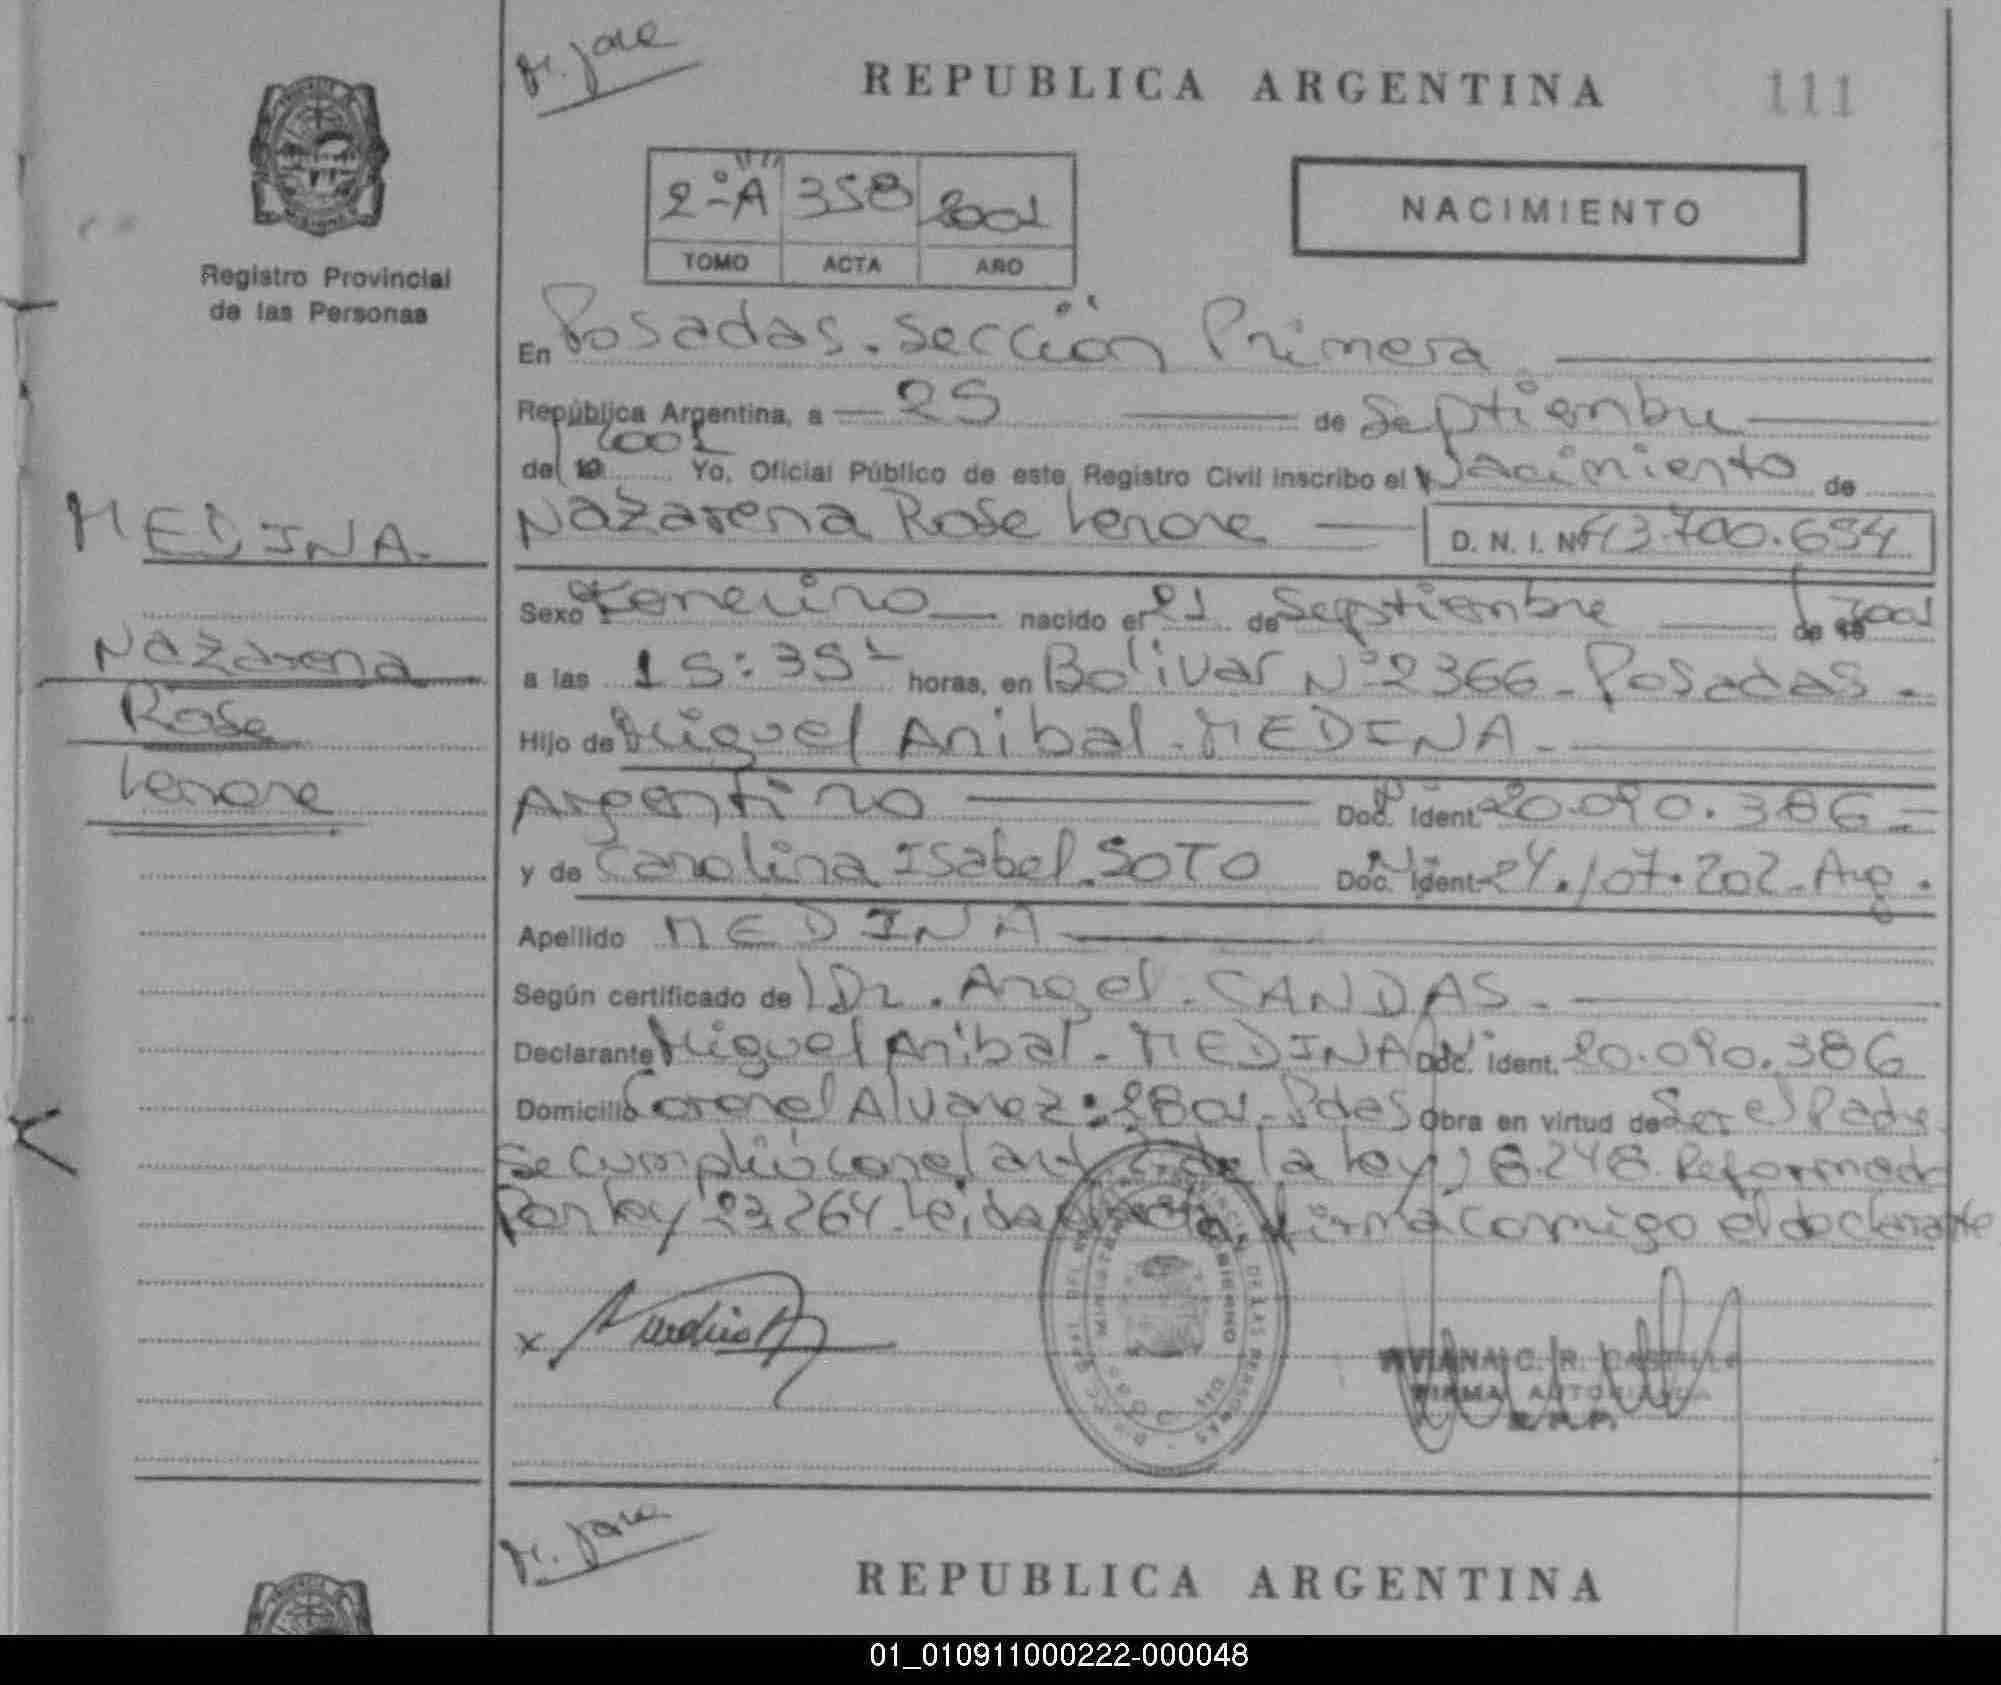 REPUBLICA ARGENTINA
111
2-ºA 358 2001
TOMO ACTA AÑO
NACIMIENTO
Registro Provincial
de las Personas
En Posadas. Sección Primera
República Argentina, a 25 de Septiembre
del 2001 Yo, Oficial Público de este Registro Civil inscribo el Nacimiento de
MEDINA.
Nazarena Rose Lenore D. N. I. Nº 43.700.654
Sexo Femenino nacido el 21 de Septiembre de 2001
Nazarena
a las 15:35 horas, en Bolivar Nº 2366 - Posadas -
Rose
Hijo de Miguel Anibal - MEDINA -
Lenore
Argentino Doc. Ident. 20.090.386
y de Carolina Isabel. SOTO Doc. Ident. 24.107.202 - Arg.
Apellido MEDINA
Según certificado de Dr. Angel - CANDAS -
Declarante Miguel Anibal - MEDINA Doc. Ident. 20.090.386
Domicilio Coronel Alvarez: 2801 - Pdas Obra en virtud de Ser el Padre
Se cumplió con el art de la ley 18.248 Reformado
Por ley 23.264. Leida el acta firma conmigo el declarante
x
VIVIANA C. R. CASTILLO
FIRMA AUTORIZADA
REPUBLICA ARGENTINA
01_010911000222-000048